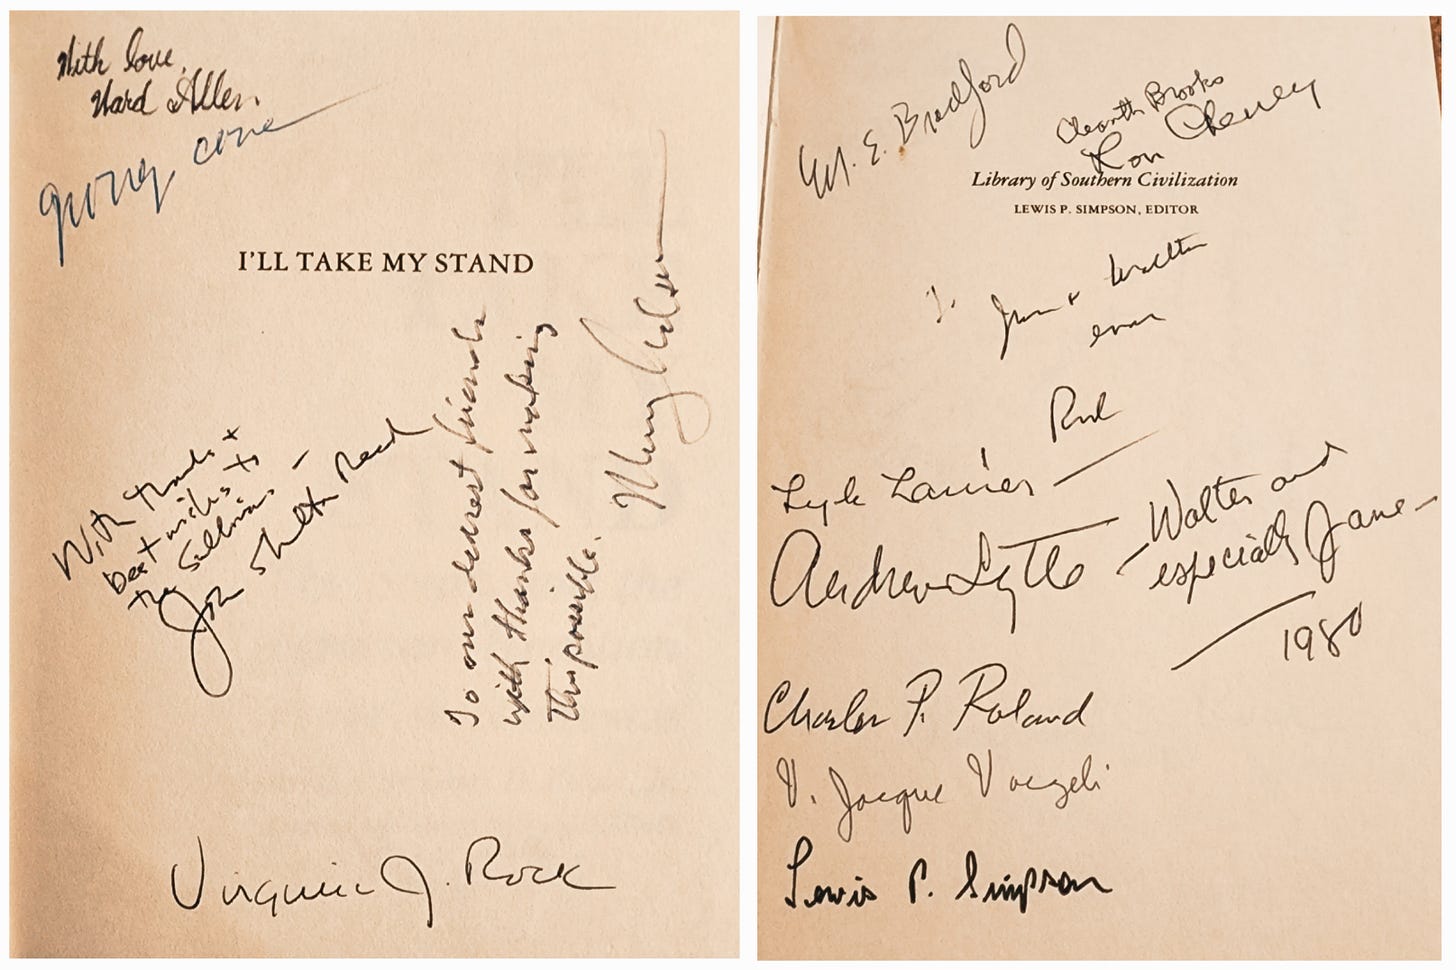 With love,
Ward Allen.
I'LL TAKE MY STAND
With thanks +
best wishes to
the Sullivans –
John Shelton Reed
To our dearest friends
with thanks for making
this possible.
Virginia J. Rock
M. E. Bradford
Cleanth Brooks
Ron Cheney
Library of Southern Civilization
LEWIS P. SIMPSON, EDITOR
Jane + Walter
Lyle Lanier
Andrew Lytle – Walter and
especially Jane –
1980
Charles P. Roland
V. Jacque Voegeli
Lewis P. Simpson